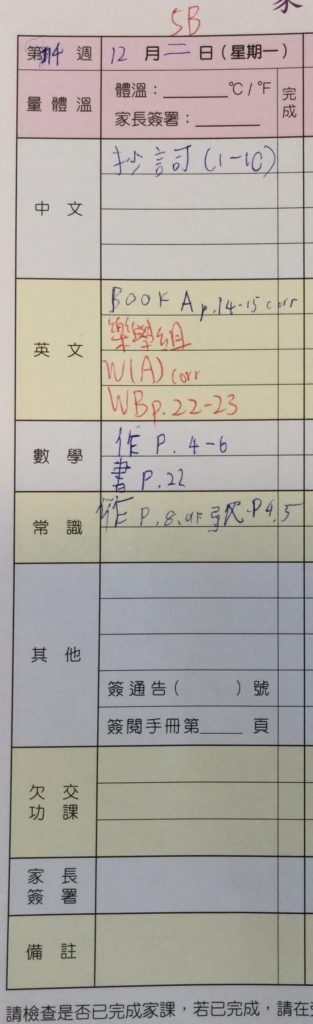 家
5B
第14週 12月二日(星期一)
量體溫 體溫：________℃/℉ 完成
家長簽署：________
中文 抄訂(1-10)
英文 BOOK A p.14-15 corr
樂學組
W(A) corr
WB p.22-23
數學 作 P. 4-6
書 P.22
常識 作 P.8, P4,5
其他
簽通告( )號
簽閱手冊第____頁
欠交功課
家長簽署
備註
請檢查是否已完成家課，若已完成，請在